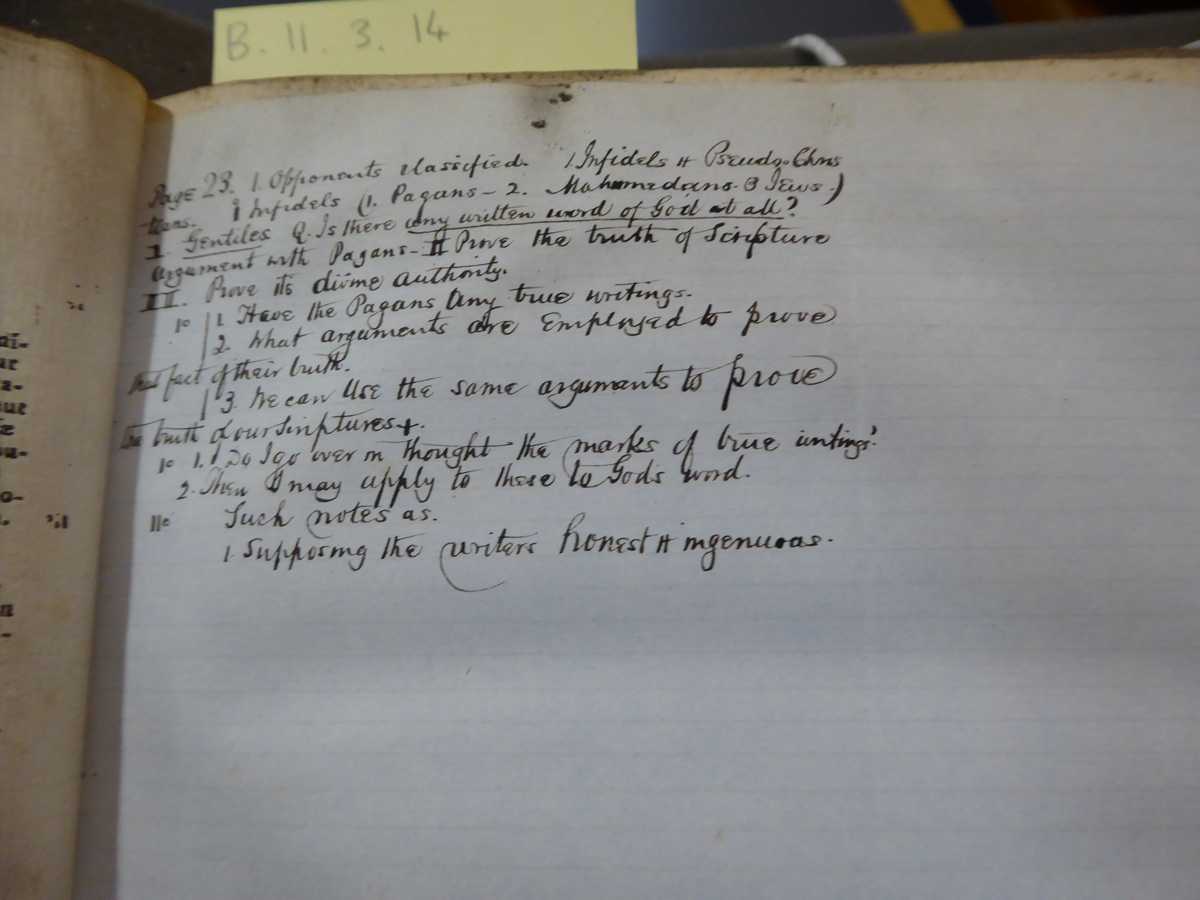 B. 11. 3. 14
Page 23. 1. Opponents classified. 1 Infidels & Pseudo-Chris
-tians. 1 Infidels (1. Pagans - 2. Mahumedans. 3 Jews.)
1. Gentiles Q. Is there any written word of God at all?
Argument with Pagans - I Prove the truth of Scripture
II. Prove its divine authority.
1º 1. Have the Pagans any true writings.
2. What arguments are Employed to prove
fact of their truth.
3. We can Use the same arguments to prove
the truth of our Scriptures +.
1º 1. Do I go over in thought the marks of true writings?
2. Then I may apply to these to Gods word.
11º Such notes as.
1. Supposing the writers honest & ingenuous.